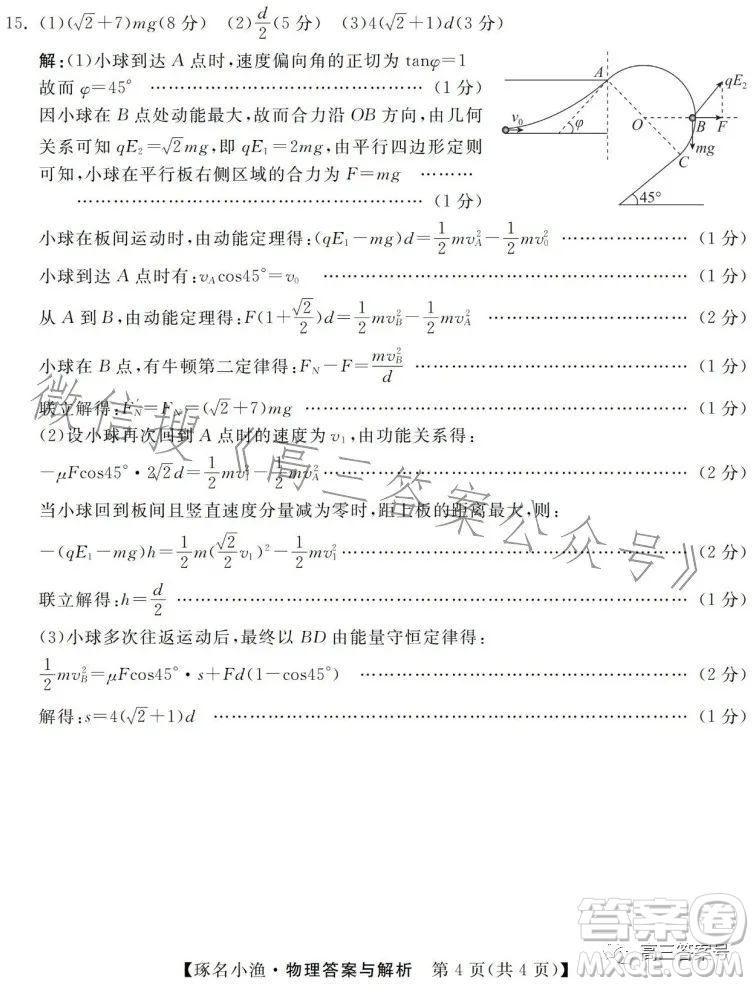 15. (1)(√2+7)mg(8分) (2)d/2(5分) (3)4(√2+1)d(3分)
解:(1)小球到达 A 点时,速度偏向角的正切为 tanφ=1
故而 φ=45° ………………………………………… (1分)
因小球在 B 点处动能最大,故而合力沿 OB 方向,由几何
关系可知 qE₂=√2mg,即 qE₁=2mg,由平行四边形定则
可知,小球在平行板右侧区域的合力为 F=mg ………
………………………………………………… (1分)
A
qE₂
v₀
φ
O
B
F
mg
C
45°
小球在板间运动时,由动能定理得:(qE₁-mg)d=1/2mv_A²-1/2mv₀² ………………… (1分)
小球到达 A 点时有:v_Acos45°=v₀ ………………………………………………… (1分)
从 A 到 B,由动能定理得:F(1+√2/2)d=1/2mv_B²-1/2mv_A² ………………………… (2分)
小球在 B 点,有牛顿第二定律得:F_N-F=mv_B²/d ………………………………… (1分)
联立解得:F_N′=F_N=(√2+7)mg ………………………………………………… (1分)
(2)设小球再次回到 A 点时的速度为 v₁,由功能关系得:
-μFcos45°·2√2d=1/2mv₁²-1/2mv_A² ……………………………………………… (2分)
当小球回到板间且竖直速度分量减为零时,距上板的距离最大,则:
-(qE₁-mg)h=1/2m(√2/2v₁)²-1/2mv₁² …………………………………………… (2分)
联立解得:h=d/2 ……………………………………………………………………… (1分)
(3)小球多次往返运动后,最终以 BD 由能量守恒定律得:
1/2mv_B²=μFcos45°·s+Fd(1-cos45°) …………………………………………… (2分)
解得:s=4(√2+1)d ………………………………………………………………… (1分)
微信搜《高三答案公众号》
答案圈
高三答案号
MXQE.COM
【琢名小渔·物理答案与解析 第4页(共4页)】